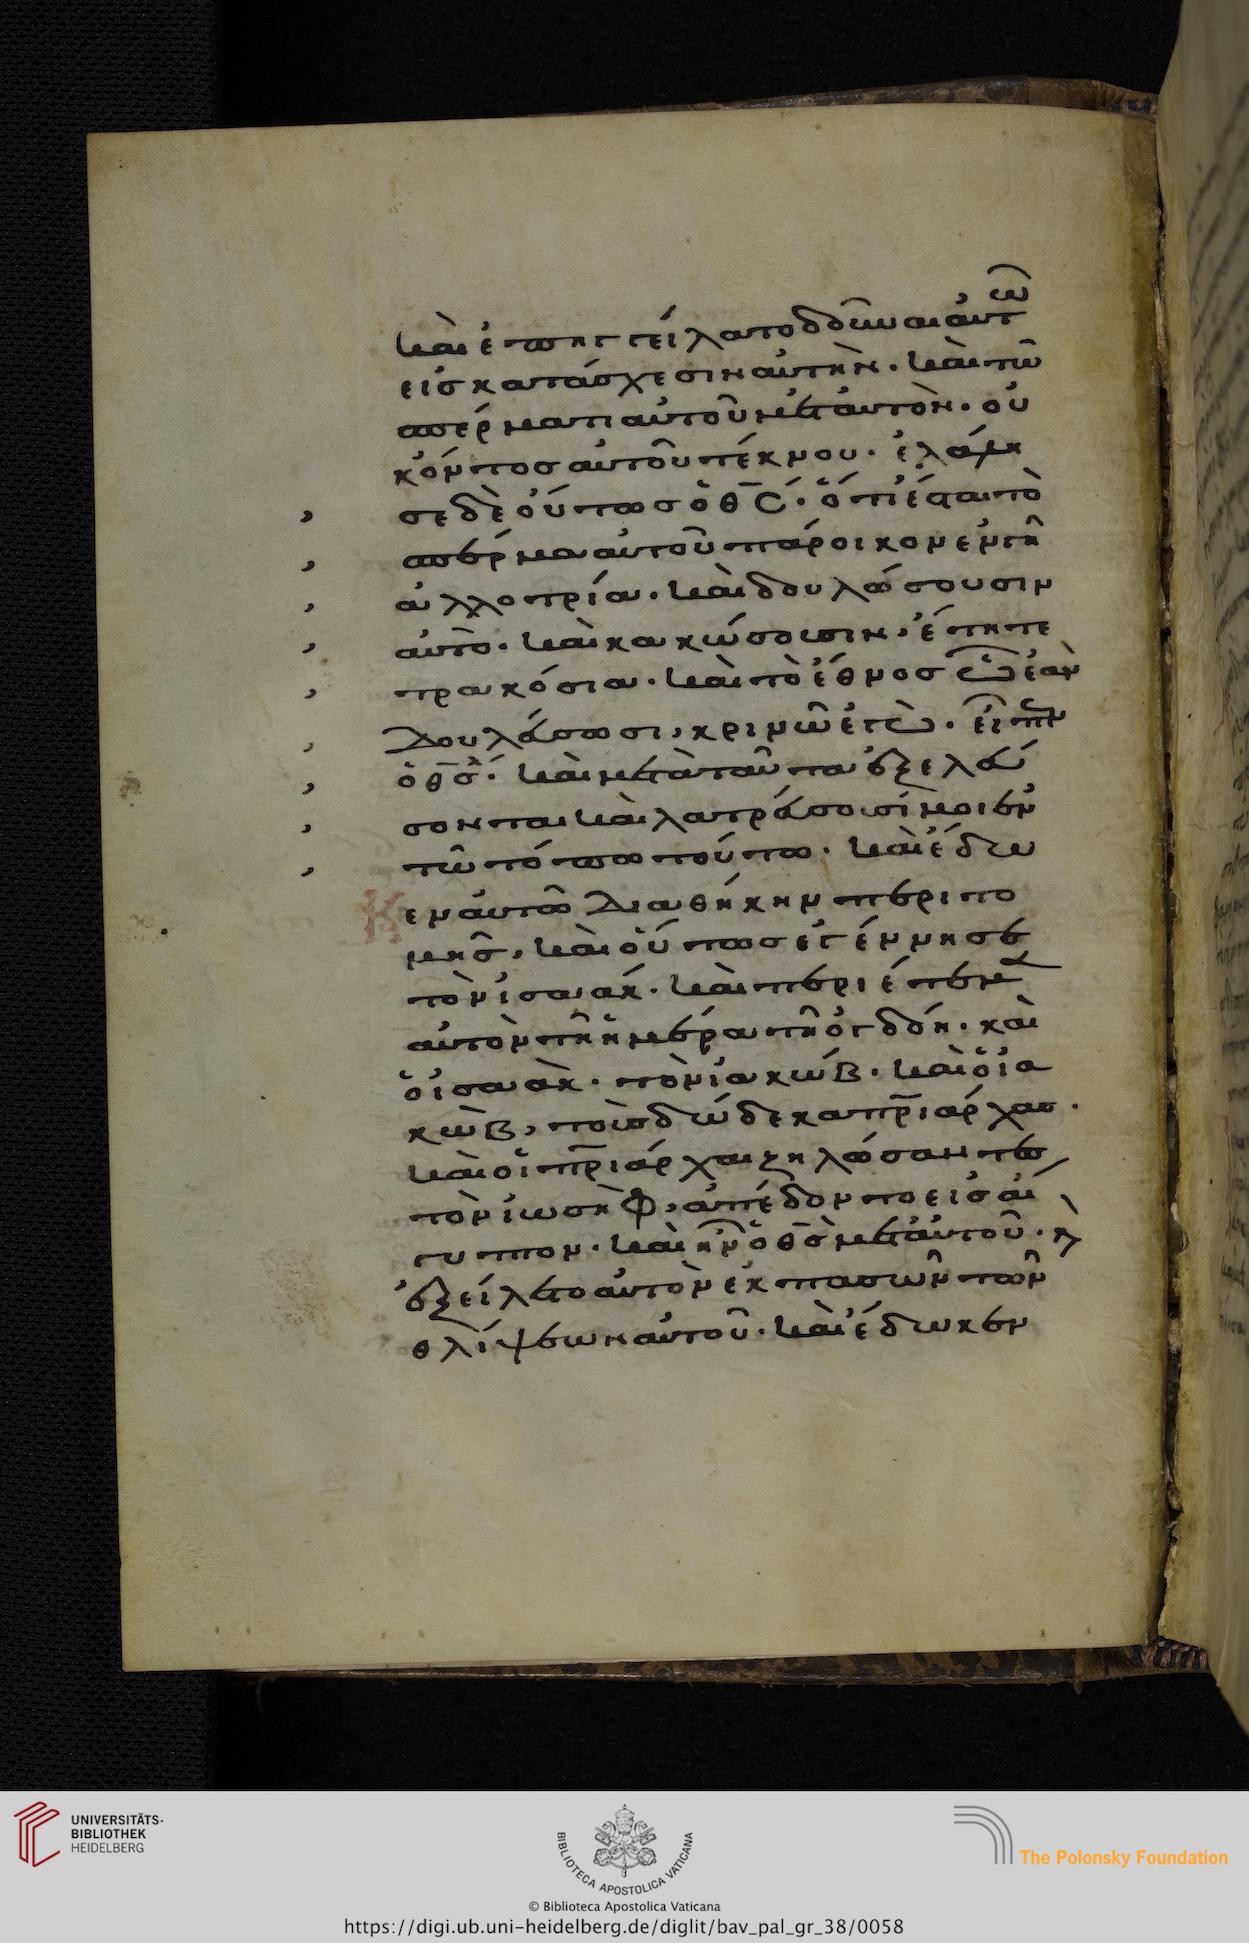 καὶ ἐπηγγείλατο δοῦναι αὐτῶ
εἰσ κατάσχεσιν αὐτὴν. καὶ τῶ
σπέρματι αὐτοῦ μετ αὐτὸν. οὐ
κ όντοσ αὐτοῦ τέκνου. ἐλάλη
σε δὲ οὕτωσ ὁ θς. ὅτι ἔσται τὸ
σπέρμα αὐτοῦ πάροικον ἐν γῆ
ἀλλοτρία. καὶ δουλώσουσιν
αὐτὸ. καὶ κακώσουσιν, ἔτη τε
τρακόσια. καὶ τὸ ἔθνοσ ὧ ἐὰν
δουλεύσωσι, κρινῶ ἐγὼ. εἶπεν
ὁ θς. καὶ μετὰ ταῦτα ἐξελεύ
σονται καὶ λατρεύσουσί μοι ἐν
τῶ τόπω τούτω. καὶ ἔδω
κεν αὐτῶ διαθήκην περιτο
μῆσ, καὶ οὕτωσ ἐγέννησε
τὸν ἰσαάκ. καὶ περιέτεμεν
αὐτὸν τῆ ἡμέρα τῆ ὀγδόη. καὶ
ὁ ἰσαὰκ. τὸν ἰακώβ. καὶ ὁ ἰα
κὼβ, τοὺσ δώδεκα πριάρχασ.
καὶ οἱ πριάρχαι ζηλώσαντεσ
τὸν ἰωσὴφ, ἀπέδοντο εἰσ αἴ
γυπτον. καὶ ἦν ὁ θς μετ αὐτοῦ. κ
ἐξείλετο αὐτὸν ἐκ πασῶν τῶν
θλίψεων αὐτοῦ. καὶ ἔδωκεν
UNIVERSITÄTS-
BIBLIOTHEK
HEIDELBERG
BIBLIOTECA APOSTOLICA VATICANA
The Polonsky Foundation
© Biblioteca Apostolica Vaticana
https://digi.ub.uni-heidelberg.de/diglit/bav_pal_gr_38/0058